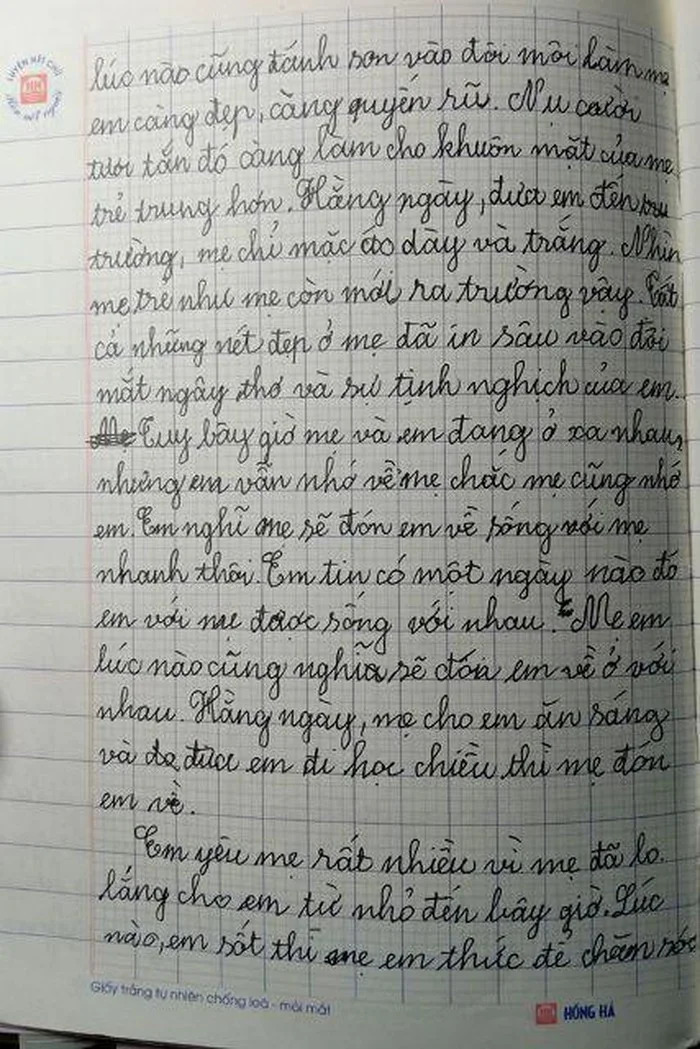 LUYỆN NÉT CHỮ
lúc nào cũng đánh son vào đôi môi làm mẹ
em càng đẹp, càng quyến rũ. Nụ cười
tươi tắn đó càng làm cho khuôn mặt của mẹ
trẻ trung hơn. Hằng ngày, đưa em đến
trường, mẹ chỉ mặc áo dày và trắng. Nhìn
mẹ trẻ như mẹ còn mới ra trường vậy. Tất
cả những nét đẹp ở mẹ đã in sâu vào đôi
mắt ngây thơ và sự tịnh nghịch của em.
Tuy bây giờ mẹ và em đang ở xa nhau,
nhưng em vẫn nhớ về mẹ chắc mẹ cũng nhớ
em. Em nghĩ mẹ sẽ đón em về sống với mẹ
nhanh thôi. Em tin có một ngày nào đó
em với mẹ được sống với nhau. Mẹ em
lúc nào cũng nghĩa sẽ đón em về ở với
nhau. Hằng ngày, mẹ cho em ăn sáng
và đưa em đi học chiều thì mẹ đón
em về.
Em yêu mẹ rất nhiều vì mẹ đã lo
lắng cho em từ nhỏ đến bây giờ. Lúc
nào, em sốt thì mẹ em thức để chăm sóc
Giấy trắng tự nhiên chống loá - mỏi mắt
HỒNG HÀ